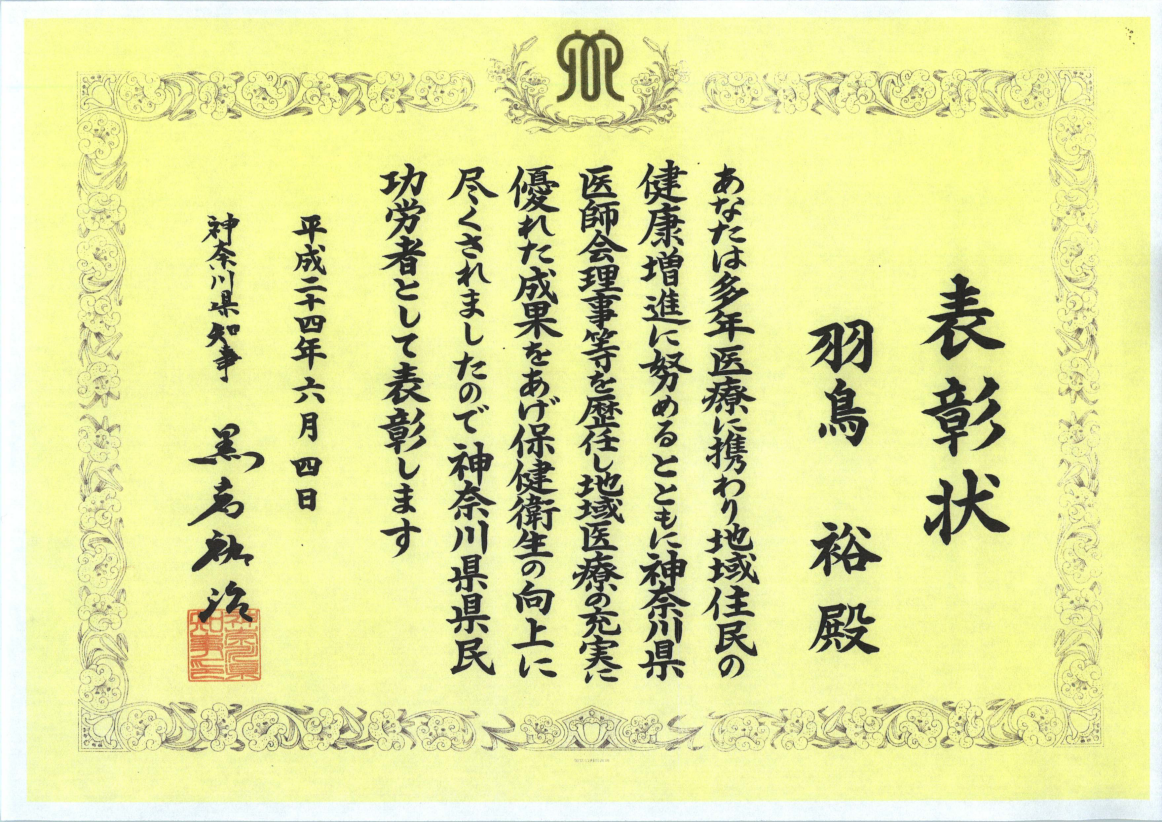 表彰状
羽鳥 裕 殿
あなたは多年医療に携わり地域住民の
健康増進に努めるとともに神奈川県
医師会理事等を歴任し地域医療の充実に
優れた成果をあげ保健衛生の向上に
尽くされましたので神奈川県県民
功労者として表彰します
平成二十四年六月四日
神奈川県知事 黒岩祐治
神奈川県
知事之印